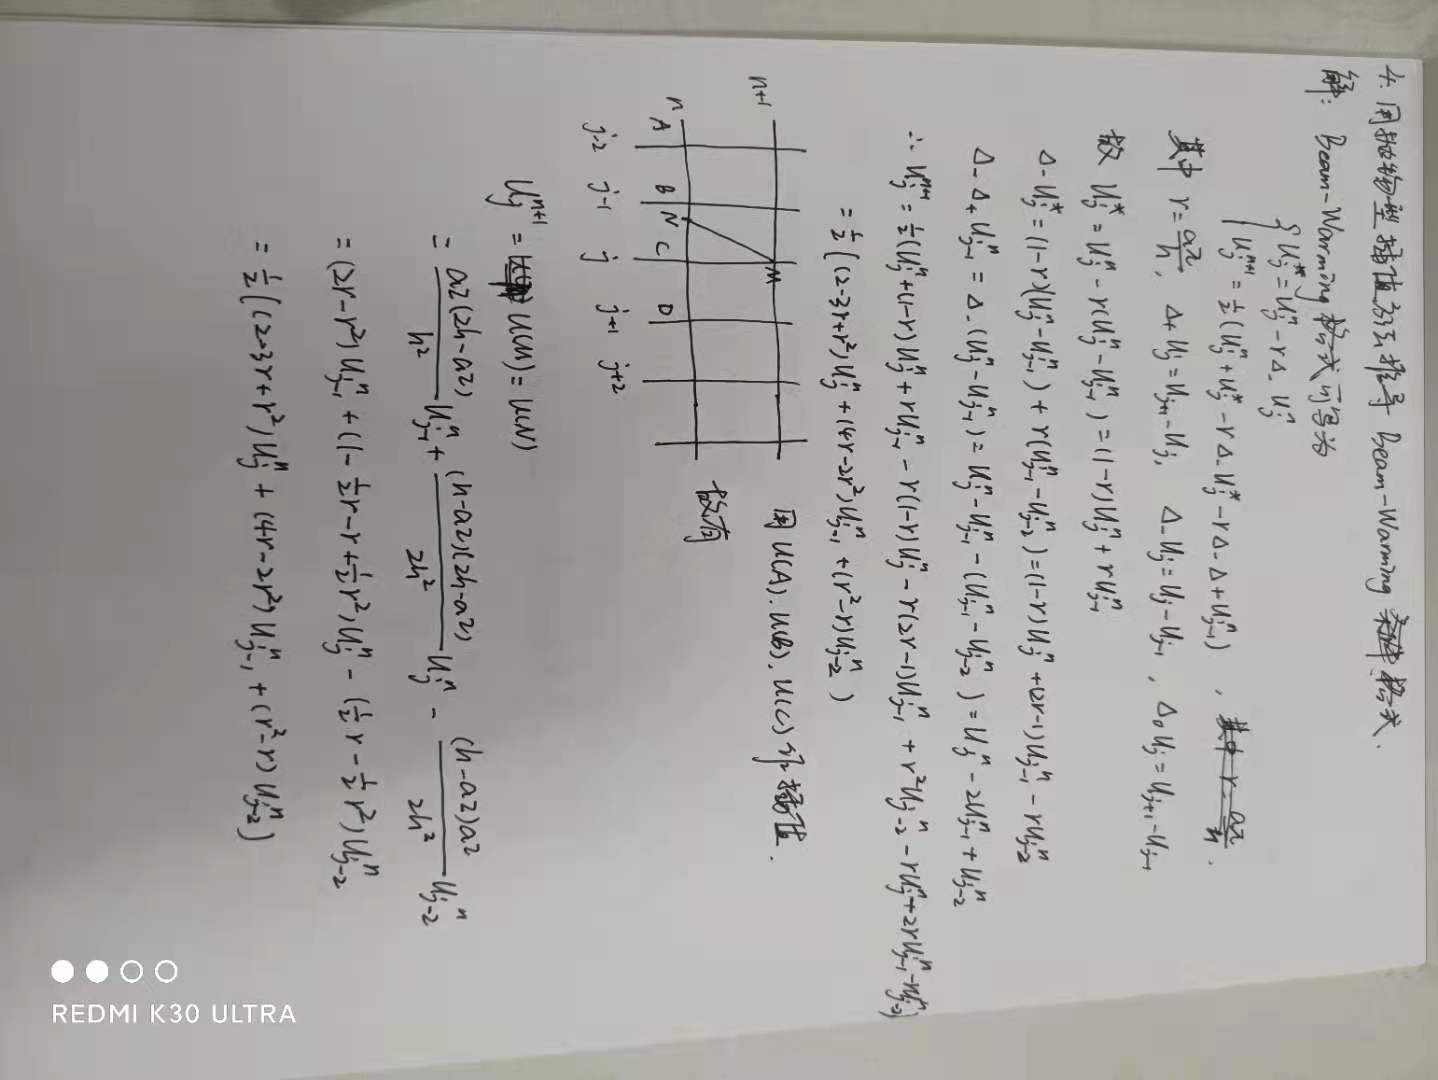 4. 用抛物型插值方法推导 Beam-Warming 格式.
解: Beam-Warming 格式可写为
{ Uⱼ* = Uⱼⁿ - rΔ₋Uⱼⁿ
Uⱼⁿ⁺¹ = ½(Uⱼⁿ + Uⱼ* - rΔ₋Uⱼ* - rΔ₋Δ₊Uⱼ₋₁ⁿ) , 其中 r = aτ/h .
其中 r = aτ/h, Δ₊Uⱼ = Uⱼ₊₁ - Uⱼ, Δ₋Uⱼ = Uⱼ - Uⱼ₋₁, Δ₀Uⱼ = Uⱼ₊₁ - Uⱼ₋₁
故 Uⱼ* = Uⱼⁿ - r(Uⱼⁿ - Uⱼ₋₁ⁿ) = (1-r)Uⱼⁿ + rUⱼ₋₁ⁿ
Δ₋Uⱼ* = (1-r)(Uⱼⁿ - Uⱼ₋₁ⁿ) + r(Uⱼ₋₁ⁿ - Uⱼ₋₂ⁿ) = (1-r)Uⱼⁿ + (2r-1)Uⱼ₋₁ⁿ - rUⱼ₋₂ⁿ
Δ₋Δ₊Uⱼ₋₁ⁿ = Δ₋(Uⱼⁿ - Uⱼ₋₁ⁿ) = Uⱼⁿ - Uⱼ₋₁ⁿ - (Uⱼ₋₁ⁿ - Uⱼ₋₂ⁿ) = Uⱼⁿ - 2Uⱼ₋₁ⁿ + Uⱼ₋₂ⁿ
∴ Uⱼⁿ⁺¹ = ½(Uⱼⁿ + (1-r)Uⱼⁿ + rUⱼ₋₁ⁿ - r(1-r)Uⱼⁿ - r(2r-1)Uⱼ₋₁ⁿ + r²Uⱼ₋₂ⁿ - rUⱼⁿ + 2rUⱼ₋₁ⁿ - rUⱼ₋₂ⁿ)
= ½((2-3r+r²)Uⱼⁿ + (4r-2r²)Uⱼ₋₁ⁿ + (r²-r)Uⱼ₋₂ⁿ)
n+1
M
n A B N C D
j-2 j-1 j j+1 j+2
用 U(A), U(B), U(C) 作插值.
故有
Uⱼⁿ⁺¹ = U(M) = U(N)
= aτ(2h-aτ)/h² Uⱼ₋₁ⁿ + (h-aτ)(2h-aτ)/2h² Uⱼⁿ - (h-aτ)aτ/2h² Uⱼ₋₂ⁿ
= (2r-r²)Uⱼ₋₁ⁿ + (1-½r-r+½r²)Uⱼⁿ - (½r-½r²)Uⱼ₋₂ⁿ
= ½((2-3r+r²)Uⱼⁿ + (4r-2r²)Uⱼ₋₁ⁿ + (r²-r)Uⱼ₋₂ⁿ)
REDMI K30 ULTRA